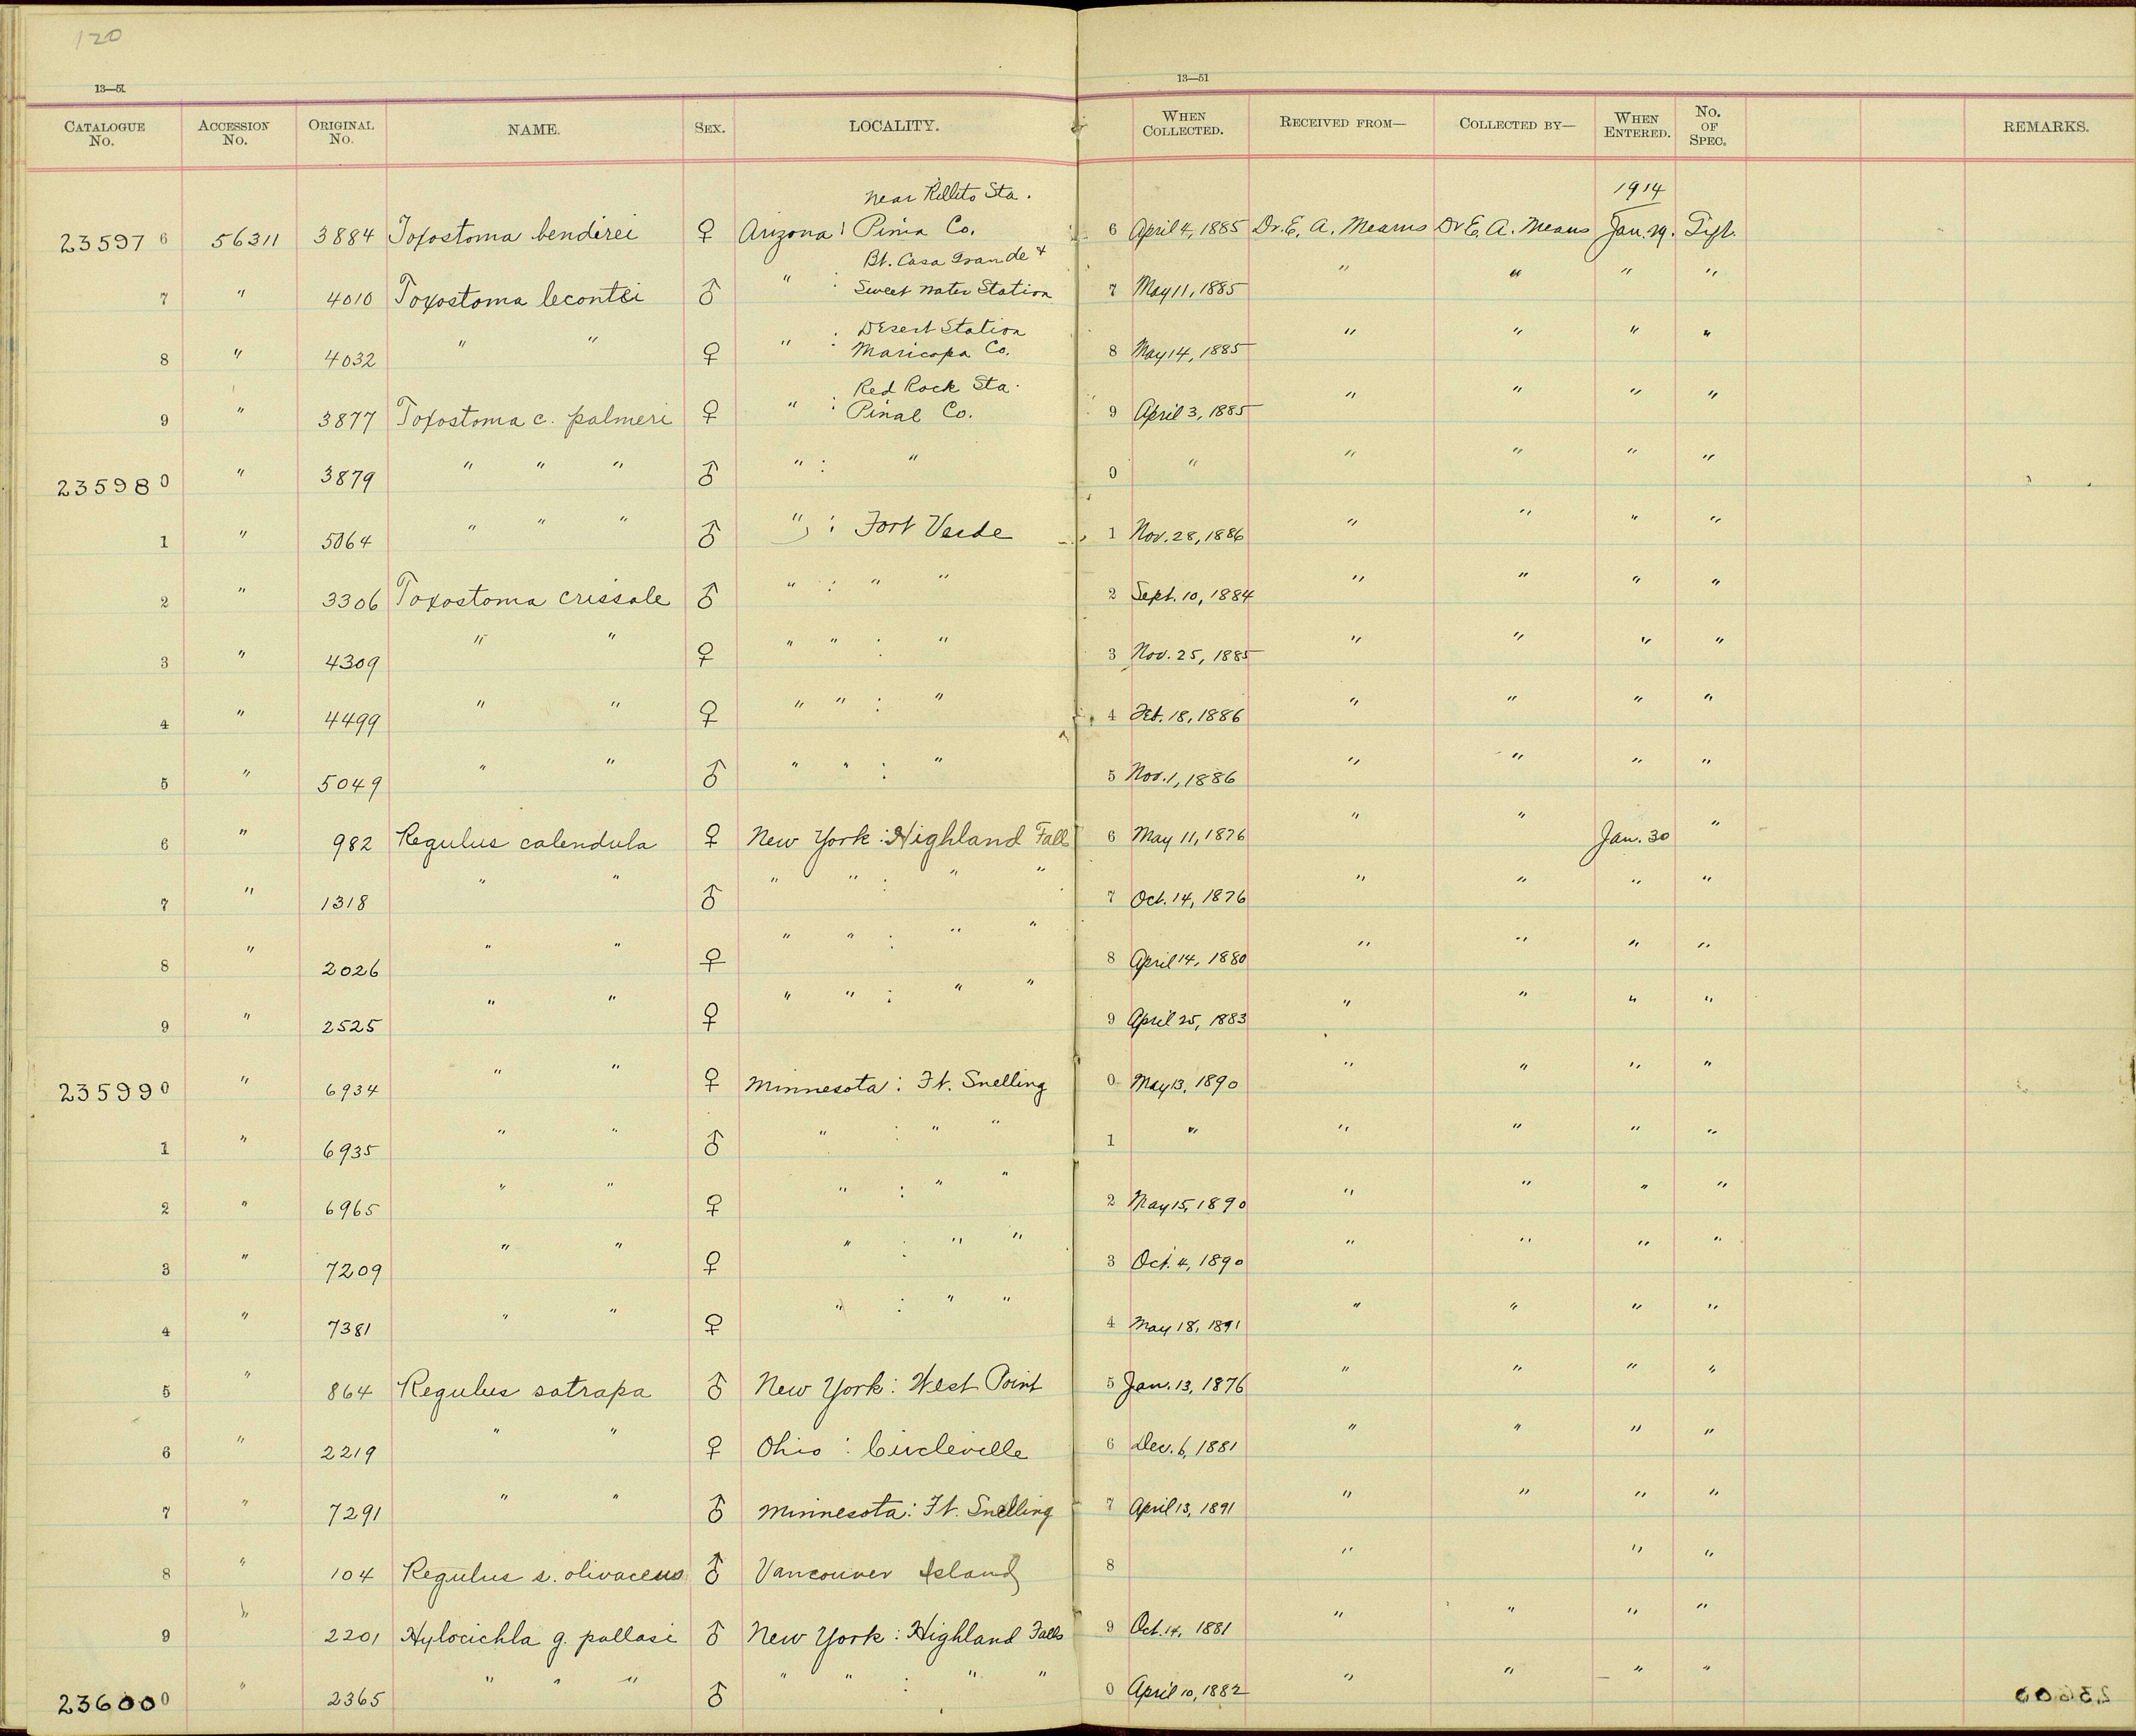 120
13—51 13—51
CATALOGUE No. ACCESSION No. ORIGINAL No. NAME. SEX. LOCALITY. WHEN COLLECTED. RECEIVED FROM— COLLECTED BY— WHEN ENTERED. No. OF SPEC. REMARKS.
near Rillito Sta. 1914
23597 6 56311 3884 Toxostoma bendirei ♀ Arizona: Pima Co. 6 April 4, 1885 Dr. E. A. Mearns Dr. E. A. Mearns Jan. 29.
Bt. Casa Grande &
7 " 4010 Toxostoma lecontei ♂ " : Sweet Water Station 7 May 11, 1885 " " " "
Desert Station
8 " 4032 " " ♀ " : Maricopa Co. 8 May 14, 1885 " " " "
Red Rock Sta.
9 " 3877 Toxostoma c. palmeri ♀ " : Pinal Co. 9 April 3, 1885 " " " "
23598 0 " 3879 " " " ♂ " : " 0 " " " " "
1 " 5064 " " " ♂ " : Fort Verde 1 Nov. 28, 1886 " " " "
2 " 3306 Toxostoma crissale ♂ " : " " 2 Sept. 10, 1884 " " " "
3 " 4309 " " ♀ " " : " 3 Nov. 25, 1885 " " " "
4 " 4499 " " ♀ " " : " 4 Feb. 18, 1886 " " " "
5 " 5049 " " ♂ " " : " 5 Nov. 1, 1886 " " " "
6 " 982 Regulus calendula ♀ New York: Highland Falls 6 May 11, 1876 " " Jan. 30 "
7 " 1318 " " ♂ " " : " " 7 Oct. 14, 1876 " " " "
8 " 2026 " " ♀ " " : " " 8 April 14, 1880 " " " "
9 " 2525 " " ♀ " " : " " 9 April 25, 1883 " " " "
23599 0 " 6934 " " ♀ Minnesota: Ft. Snelling 0 May 13, 1890 " " " "
1 " 6935 " " ♂ " : " " 1 " " " " "
2 " 6965 " " ♀ " : " " 2 May 15, 1890 " " " "
3 " 7209 " " ♀ " : " " 3 Oct. 4, 1890 " " " "
4 " 7381 " " ♀ " : " " 4 May 18, 1891 " " " "
5 " 864 Regulus satrapa ♂ New York: West Point 5 Jan. 13, 1876 " " " "
6 " 2219 " " ♀ Ohio: Circleville 6 Dec. 6, 1881 " " " "
7 " 7291 " " ♂ Minnesota: Ft. Snelling 7 April 13, 1891 " " " "
8 " 104 Regulus s. olivaceus ♂ Vancouver Island 8 " " "
9 " 2201 Hylocichla g. pallasi ♂ New York: Highland Falls 9 Oct. 14, 1881 " " " "
23600 0 " 2365 " " " ♂ " " : " " 0 April 10, 1882 " " " "